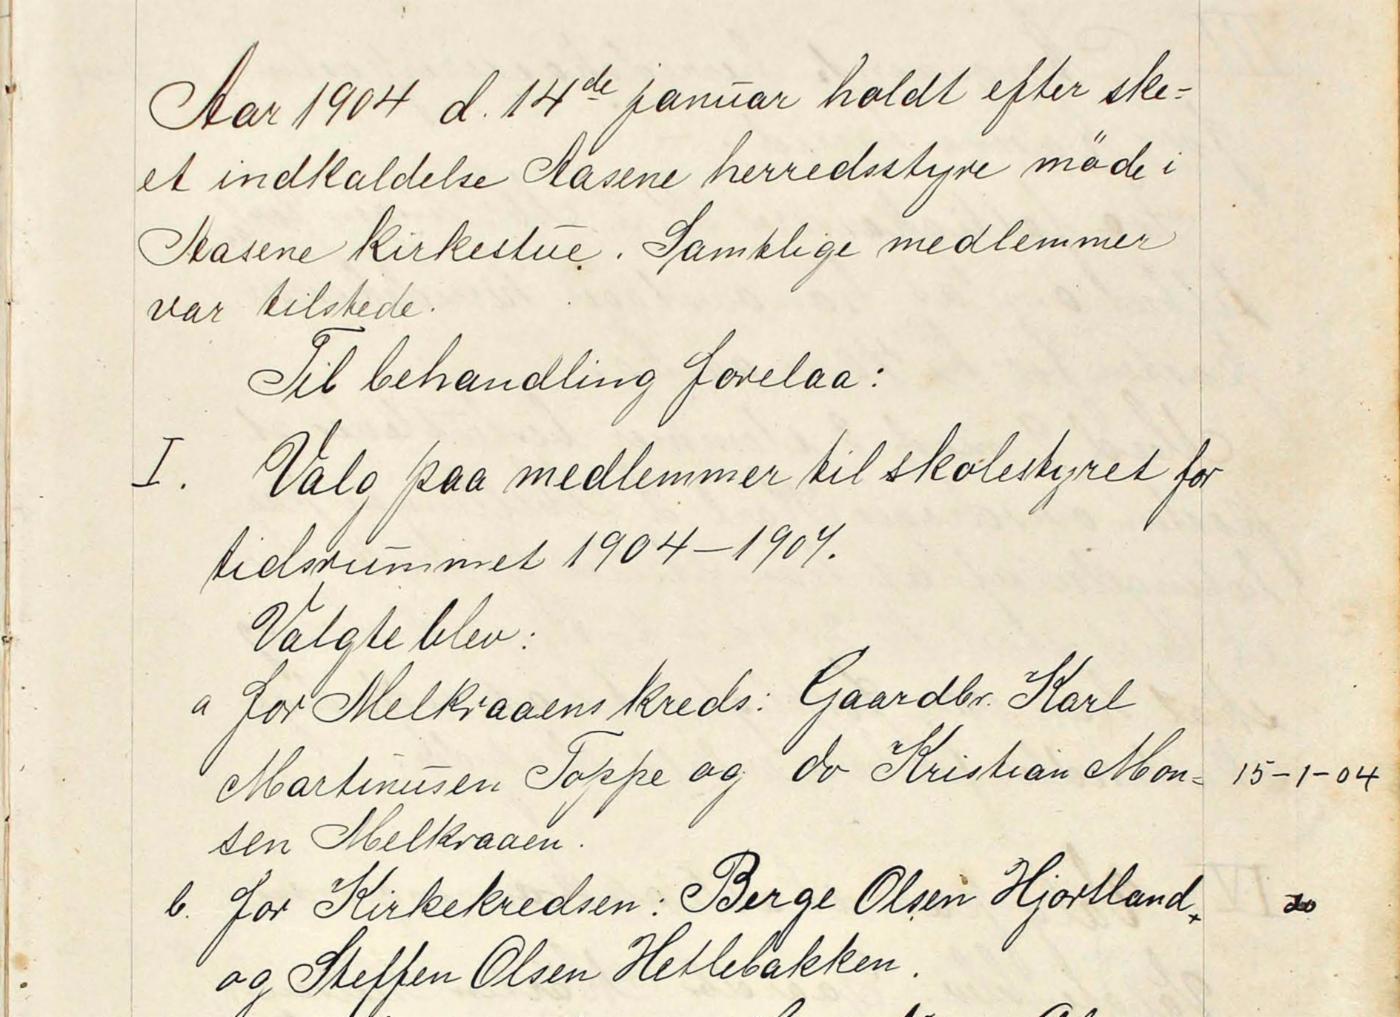 Aar 1904 d. 14de januar holdt efter ske=
et indkaldelse Aasene herredsstyre möde i
Aasene kirkestue. Samtlige medlemmer
var tilstede.
Til behandling forelaa:
I. Valg paa medlemmer til skolestyret for
tidsrummet 1904–1907.
Valgte blev:
a for Melkraaens kreds: Gaardbr. Karl
Martinusen Toppe og do Kristian Mon= 15-1-04
sen Melkraaen.
b. for Kirkekredsen: Berge Olsen Hjortland, do
og Steffen Olsen Hetlebakken.